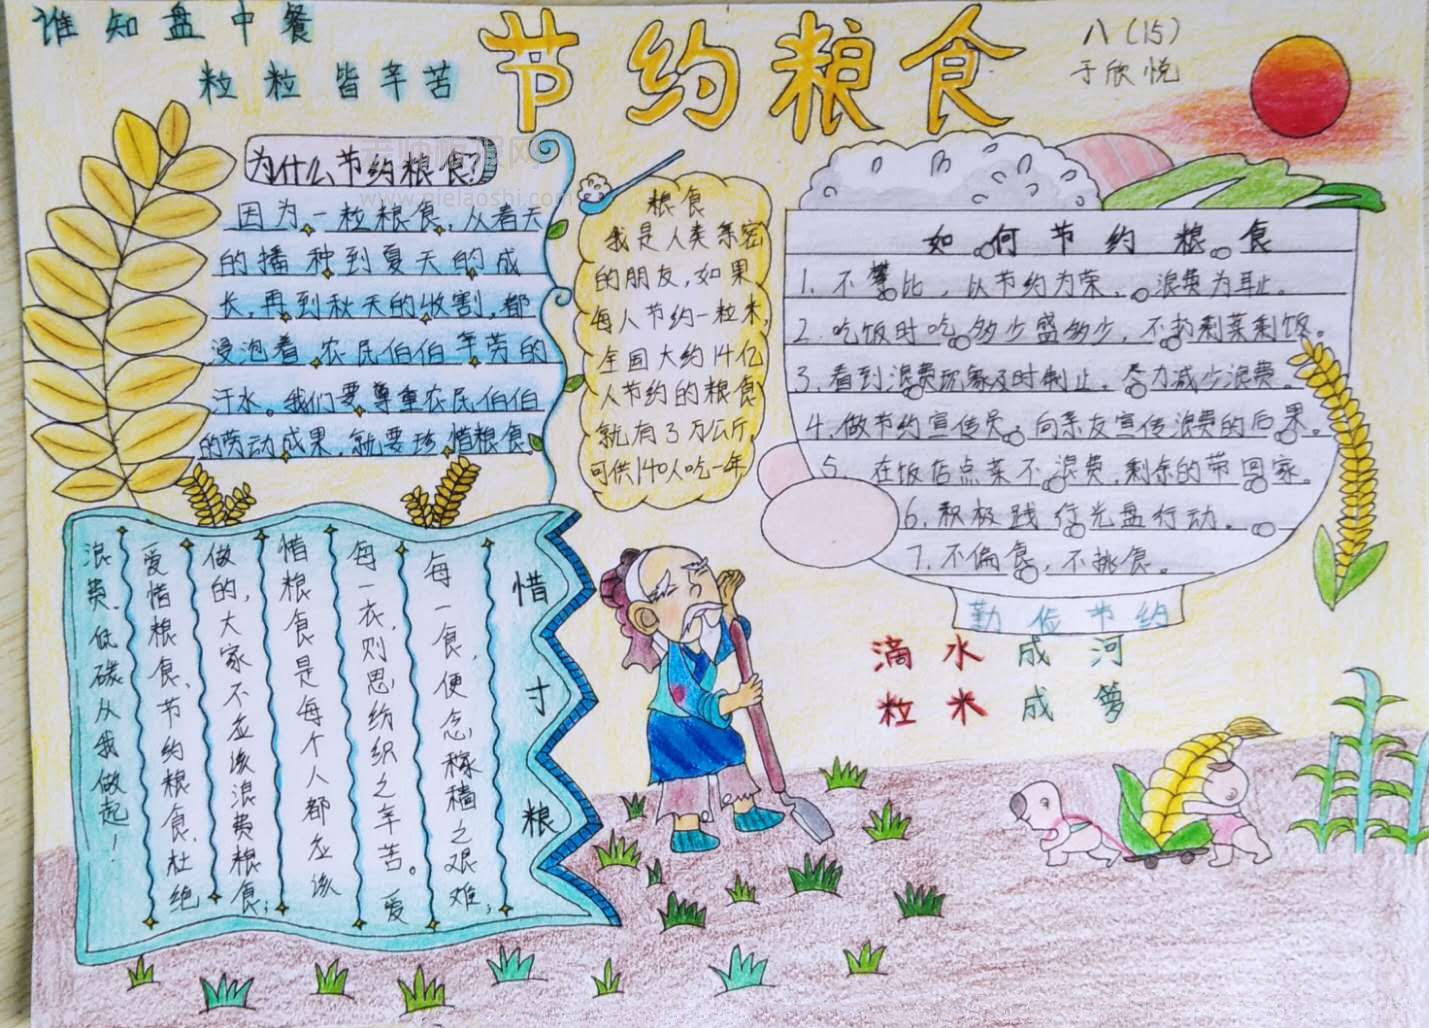 谁知盘中餐
粒粒皆辛苦
节约粮食
八(15)
于欣悦
为什么节约粮食?
因为一粒粮食,从春天
的播种到夏天的成
长,再到秋天的收割,都
浸泡着农民伯伯辛劳的
汗水。我们要尊重农民伯伯
的劳动成果,就要珍惜粮食。
粮食
我是人类亲密
的朋友,如果
每人节约一粒米,
全国大约14亿
人节约的粮食
就有3万公斤,
可供140人吃一年
如何节约粮食
1.不攀比,以节约为荣,浪费为耻。
2.吃饭时吃多少盛多少,不扔剩菜剩饭。
3.看到浪费现象及时制止。尽力减少浪费。
4.做节约宣传员,向亲友宣传浪费的后果。
5.在饭店点菜不浪费,剩余的带回家。
6.积极践行光盘行动。
7.不偏食,不挑食。
勤俭节约
滴水成河
粒米成箩
惜寸粮
每一食,便念稼穑之艰难;
每一衣,则思纺织之辛苦。爱
惜粮食是每个人都应该
做的,大家不应该浪费粮食;
爱惜粮食、节约粮食、杜绝
浪费、低碳从我做起!